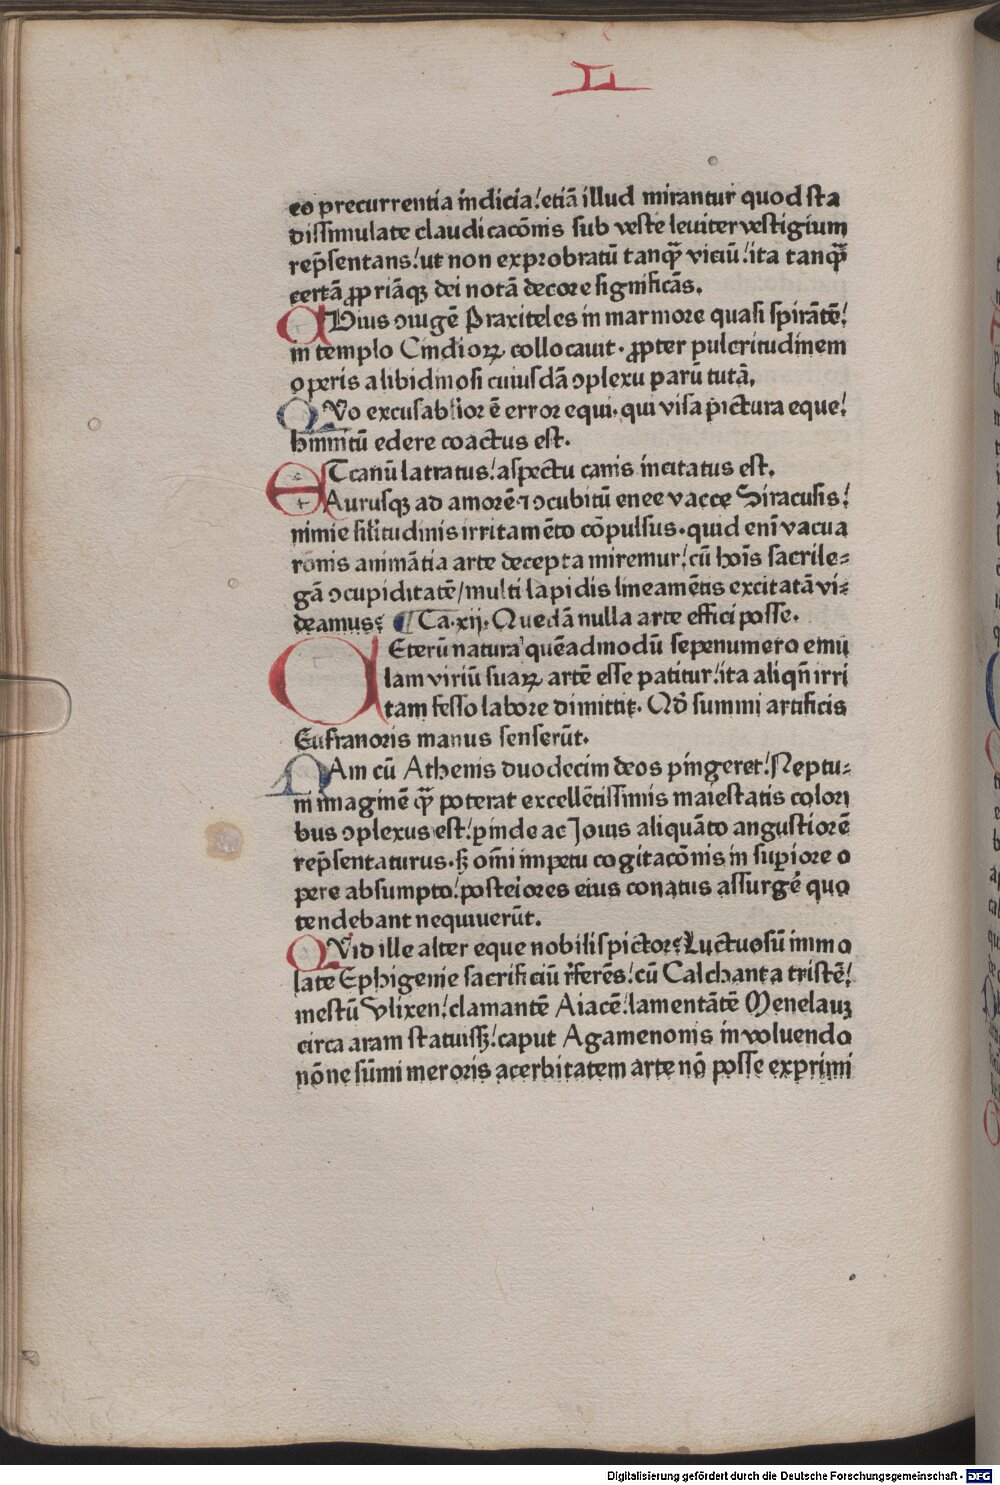 L
eo precurrentia indicia: etiā illud mirantur quod sta
dissimulate claudicacōnis sub veste leuiter vestigium
rep̄sentans: ut non exprobratū tanqꝫ viciū: ita tanqꝫ
certā ꝓpriāqꝫ dei notā decore significās.
CUius ɔiugē Praxiteles in marmore quasi spirātē:
in templo Cindioꝝ collocauit. ꝓpter pulcritudinem
operis alibidinosi cuiusdā ɔplexu parū tutā.
QVo excusabilior ē error equi. qui visa pictura eque:
hinnitū edere coactus est.
ET canū latratus: aspectu canis incitatus est.
TAurusqꝫ ad amorē ⁊ ɔcubitū enee vacce Siracusis:
nimie silitudinis irritamēto cōpulsus. quid eni̅ vacua
rōnis animātia arte decepta miremur: cū hoīs sacrile⸗
gā ɔcupiditatē/multi lapidis lineamētis excitatā vi⸗
deamus: Ca.xij. Quedā nulla arte effici posse.
CEterū natura quēadmodū sepenumero emu
lam viriū suaꝝ artē esse patitur: ita aliqn̄ irri
tam fesso labore dimittit. Qd̄ summi artificis
Eufranoris manus senserūt.
NAm cū Athenis duodecim deos pingeret: Neptu⸗
ni imaginē qꝫ poterat excellētissimis maiestatis colori
bus ɔplexus est: ꝑinde ac Jouis aliquāto angustiorē
rep̄sentaturus. sꝫ omī impetu cogitacōnis in suꝑiore o
pere absumpto: posteiores eius conatus assurgē quo
tendebant nequiuerūt.
QVid ille alter eque nobilis pictor: Luctuosū immo
late Ephigenie sacrificiū r̄ferēs: cū Calchanta tristē:
mestū Vlixen: clamantē Aiacē: lamentātē Menelauꝫ
circa aram statuissꝫ: caput Agamenonis inuoluendo
nōne sūmi meroris acerbitatem arte nō posse exprimi
Digitalisierung gefördert durch die Deutsche Forschungsgemeinschaft - DFG